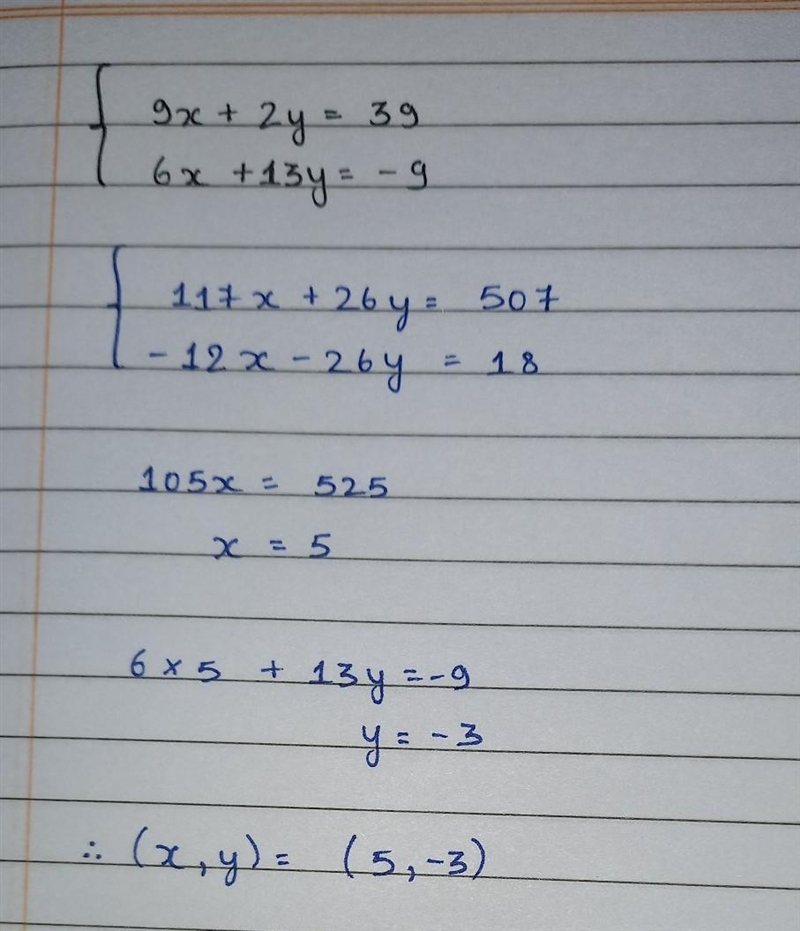 9x + 2y = 39
6x + 13y = -9
117x + 26y = 507
-12x - 26y = 18
105x = 525
x = 5
6 × 5 + 13y = -9
y = -3
∴ (x, y) = (5, -3)